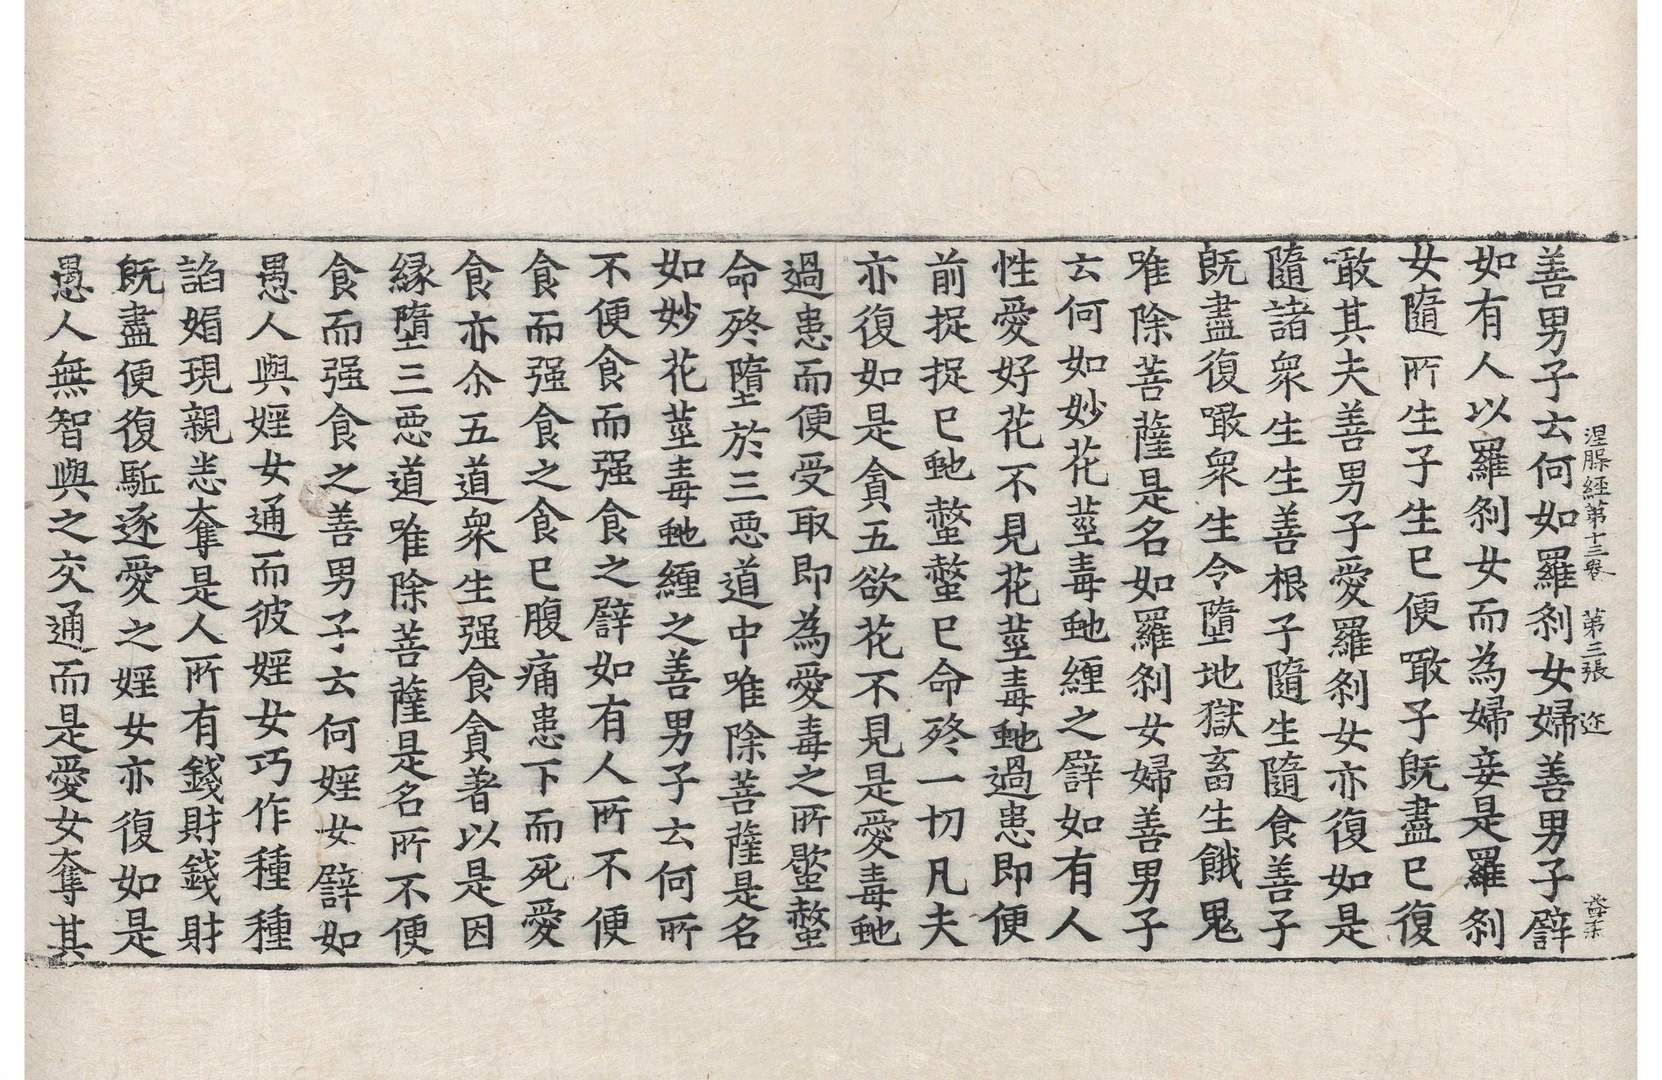 涅槃經第十三卷 第三張 迩
善男子云何如羅剎女婦善男子譬
如有人以羅剎女而為婦妾是羅剎
女隨所生子生已便噉子既盡已復
噉其夫善男子愛羅剎女亦復如是
隨諸眾生生善根子隨生隨食善子
既盡復噉眾生令墮地獄畜生餓鬼
唯除菩薩是名如羅剎女婦善男子
云何如妙花莖毒虵纏之譬如有人
性愛好花不見花莖毒虵過患即便
前捉捉已虵螫螫已命終一切凡夫
亦復如是貪五欲花不見是愛毒虵
過患而便受取即為愛毒之所螫
命終墮於三惡道中唯除菩薩是名
如妙花莖毒虵纏之善男子云何所
不便食而强食之譬如有人所不便
食而强食之食已腹痛患下而死愛
食亦尒五道眾生强食貪著以是因
緣墮三惡道唯除菩薩是名所不便
食而强食之善男子云何婬女譬如
愚人與婬女通而彼婬女巧作種種
諂媚現親悉奪是人所有錢財錢財
既盡便復駈逐愛之婬女亦復如是
愚人無智與之交通而是愛女奪其